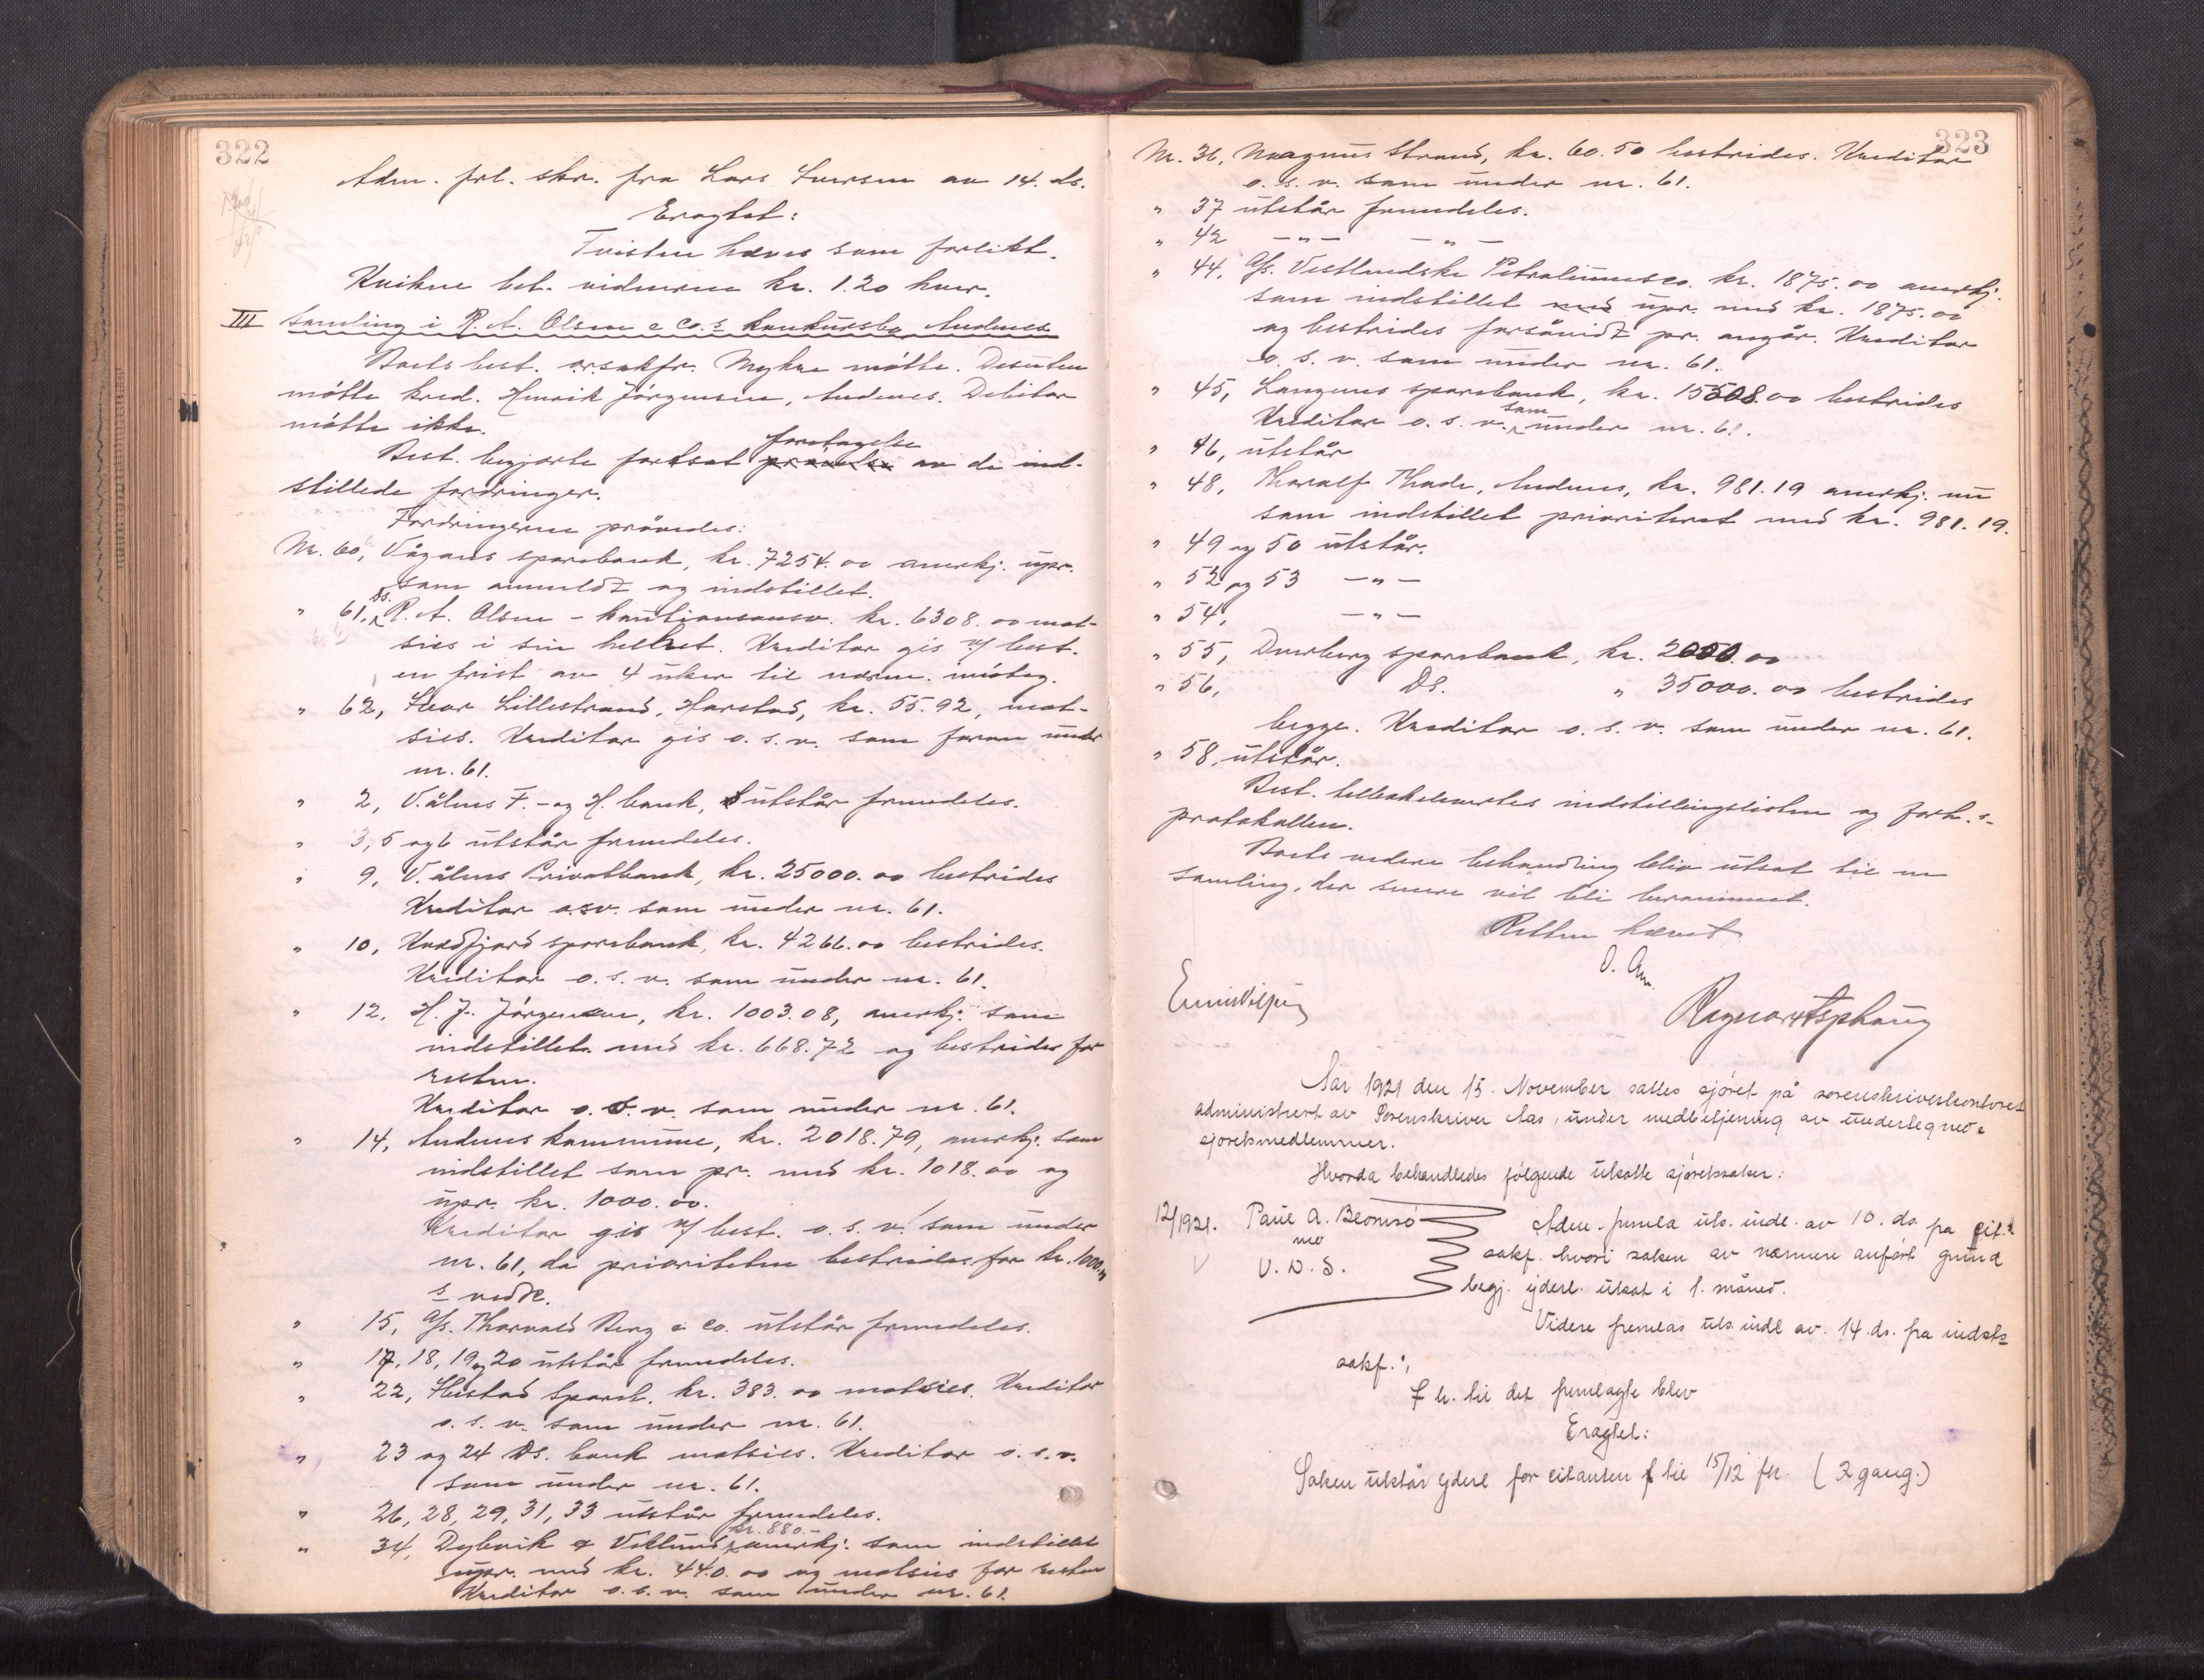 322
Adm. frl. skr. fra Lars Iversen av 14. ds.
Eragtet:
Tvisten hæves som forlikt.
Kvikne bet. vidnerne kr. 1.20 hver.
III Samling i R. A. Olsen & Co.s konkursbo Andenes
Boets best. o.r.sakfr. Mykne møtte. Desuten
møtte kred. Henrik Jørgensen, Andenes. Debitor
møtte ikke.
Best. begjærte fortsat prøvelse foretagelse av de ind-
stillede fordringer.
Fordringerne prøvedes:
Nr. 60, Vågans sparebank, kr. 7254.00 anerkj. upr.
som anmeldt og indstillet.
" 61, Ds. R. A. Olsen - kautionsansv. kr. 6308.00 mot-
sies i sin helhet. Kreditor gis v/ best.
en frist av 4 uker til nærm. moteg.
" 62, Ivar Lillestrand, Harstad, kr. 55.92, mot-
sies. Kreditor gis o. s. v. som foran under
nr. 61.
" 2, V.ålens F.- og H. bank, utstår fremdeles.
" 3, 5 og 6 utstår fremdeles.
" 9, V.ålens Privatbank, kr. 25000.00 bestrides
Kreditor o.s.v. som under nr. 61.
" 10, Kvædfjord sparebank, kr. 4266.00 bestrides.
Kreditor o. s. v. som under nr. 61.
" 12, H. J. Jørgensen, kr. 1003.08, anerkj. som
indstillet med kr. 668.72 og bestrides for
resten.
Kreditor o. s. v. som under nr. 61.
" 14, Andenes kommune, kr. 2018.79, anerkj. som
indstillet som pr. med kr. 1018.00 og
upr. kr. 1000.00.
Kreditor gis v/ best. o. s. v. som under
nr. 61, da prioriteten bestrides for kr. 1000.00
s vedk.
" 15, A/s. Thorvald Berg & Co. utstår fremdeles.
" 17, 18, 19 og 20 utstår fremdeles.
" 22, Ibestad Spareb. kr. 383.00 motsies. Kreditor
o. s. v. som under nr. 61.
" 23 og 24 Ds. bank motsies. Kreditor o. s. v.
som under nr. 61.
" 26, 28, 29, 31, 33 utstår fremdeles.
" 34, Dybvik & Veklund, kr. 880.- anerkj. som indstillet
upr. med kr. 440.00 og motsies for resten
Kreditor o. s. v. som under nr. 61.
323
Nr. 36, Magnus Strand, kr. 60.50 bestrides. Kreditor
o. s. v. som under nr. 61.
" 37 utstår fremdeles.
" 42 -"- -"-
" 44, A/s. Vestlandske Petroleumsco. kr. 1875.00 anerkj.
som indstillet med upr. med kr. 1875.00
og bestrides forsåvidt pr. angår. Kreditor
o. s. v. som under nr. 61.
" 45, Langnes sparebank, kr. 15508.00 bestrides
Kreditor o. s. v. som under nr. 61.
" 46, utstår
" 48, Thoralf Thode, Andenes, kr. 981.19 anerkj. nu
som indstillet prioritert med kr. 981.19.
" 49 og 50 utstår.
" 52 og 53 -"-
" 54, -"-
" 55, Dverberg sparebank, kr. 2000.00
" 56, Ds. " 35000.00 bestrides
begge. Kreditor o. s. v. som under nr. 61.
" 58, utstår.
Best. tilbakelevertes indstillingslisten og forh.s-
protokollen.
Boets videre behandling blev utsat til en
samling, der senere vil bli berammet.
Retten hævet
O. Aas.
Ragnar Asphaug
Aar 1921 den 15. November sattes sjøret på sorenskriverkontoret
administrert av Sorenskriver Aas, under medbetjening av undertegnede
sjøretsmedlemmer.
Hvorda behandledes følgende utsatte sjøretssaker:
12/1921. Paul A. Bleomsø
mo
V. D. S.
Adm. fremla uts. indl. av 10. ds. fra cit.s
sakf. hvori saken av nærmere anført grund
begj. yderl. utsat i 1. måned.
Videre fremlas uts. indl av. 14. ds. fra indsts
sakf.;
f h. til det fremlagte blev
Eragtet:
Saken utstår yderl for citanten f til 15/12 fk. (2 gang.)